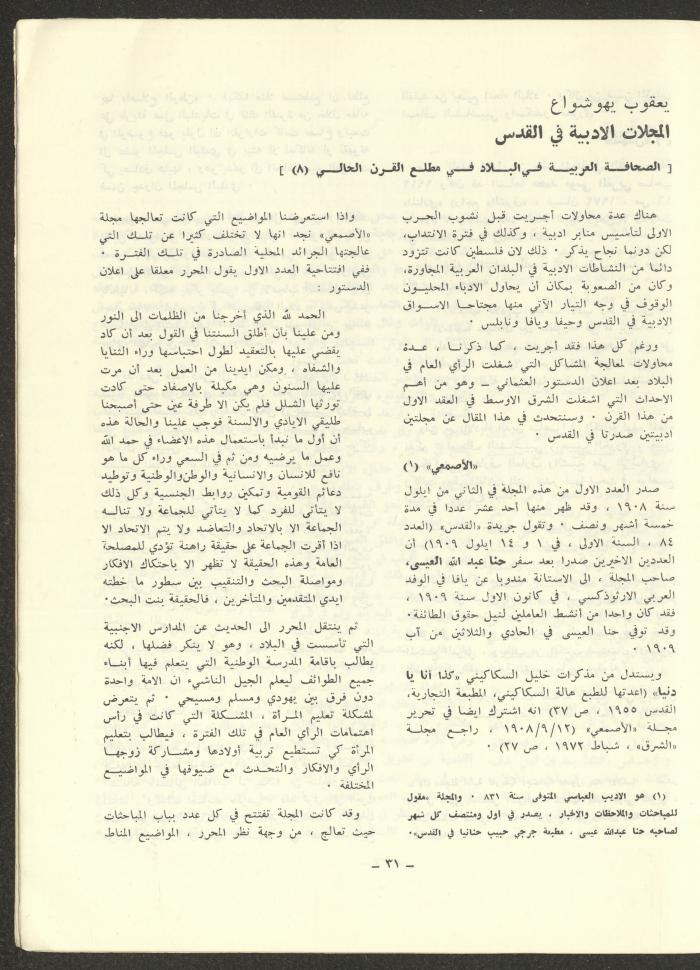 يعقوب يهوشواع
المجلات الادبية في القدس
[ الصحافة العربية في البلاد في مطلع القرن الحالي (٨) ]
هناك عدة محاولات أجريت قبل نشوب الحرب
الاولى لتأسيس منابر ادبية ، وكذلك في فترة الانتداب،
لكن دونما نجاح يذكر ٠ ذلك لان فلسطين كانت تتزود
دائما من النشاطات الادبية في البلدان العربية المجاورة،
وكان من الصعوبة بمكان أن يحاول الادباء المحليون
الوقوف في وجه التيار الآتي منها مجتاحا الاسواق
الادبية في القدس وحيفا ويافا ونابلس ٠
ورغم كل هذا فقد أجريت ، كما ذكرنا ، عدة
محاولات لمعالجة المشاكل التي شغلت الرأي العام في
البلاد بعد اعلان الدستور العثماني ــ وهو من أهم
الاحداث التي اشغلت الشرق الاوسط في العقد الاول
من هذا القرن ٠ وسنتحدث في هذا المقال عن مجلتين
ادبيتين صدرتا في القدس ٠
«الأصمعي» (١)
صدر العدد الاول من هذه المجلة في الثاني من ايلول
سنة ١٩٠٨ ، وقد ظهر منها أحد عشر عددا في مدة
خمسة أشهر ونصف ٠ وتقول جريدة «القدس» (العدد
٨٤ ، السنة الاولى ، في ١ و ١٤ ايلول ١٩٠٩) أن
العددين الاخيرين صدرا بعد سفر حنا عبد الله العيسى،
صاحب المجلة ، الى الاستانة مندوبا عن يافا في الوفد
العربي الارثوذكسي ، في كانون الاول سنة ١٩٠٩ ،
فقد كان واحدا من أنشط العاملين لنيل حقوق الطائفة٠
وقد توفي حنا العيسى في الحادي والثلاثين من آب
١٩٠٩ ٠
ويستدل من مذكرات خليل السكاكيني «كذا أنا يا
دنيا» (اعدتها للطبع هالة السكاكيني، المطبعة التجارية،
القدس ١٩٥٥ ، ص ٣٧) انه اشترك ايضا في تحرير
مجلة «الأصمعي» (١٩٠٨/٩/١٢ ، راجع مجلة
«الشرق» ، شباط ١٩٧٢ ، ص ٢٧) ٠
(١) هو الاديب العباسي المتوفى سنة ٨٣١ ٠ والمجلة «مقول
للمباحثات والملاحظات والاخبار ، يصدر في اول ومنتصف كل شهر
لصاحبه حنا عبدالله عيسى ، مطبعة جرجي حبيب حنانيا في القدس»٠
واذا استعرضنا المواضيع التي كانت تعالجها مجلة
«الأصمعي» نجد انها لا تختلف كثيرا عن تلك التي
عالجتها الجرائد المحلية الصادرة في تلك الفترة ٠
ففي افتتاحية العدد الاول يقول المحرر معلقا على اعلان
الدستور :
الحمد لله الذي أخرجنا من الظلمات الى النور
ومن علينا بأن أطلق السنتنا في القول بعد أن كاد
يقضي عليها بالتعقيد لطول احتباسها وراء الثنايا
والشفاه ، ومكن ايدينا من العمل بعد أن مرت
عليها السنون وهي مكبلة بالاصفاد حتى كادت
تورثها الشلل فلم يكن الا طرفة عين حتى أصبحنا
طليقي الايادي والالسنة فوجب علينا والحالة هذه
أن أول ما نبدأ باستعمال هذه الاعضاء في حمد الله
وعمل ما يرضيه ومن ثم في السعي وراء كل ما هو
نافع للانسان والانسانية والوطن والوطنية وتوطيد
دعائم القومية وتمكين روابط الجنسية وكل ذلك
لا يتأتى للفرد كما لا يتأتي للجماعة ولا تناله
الجماعة الا بالاتحاد والتعاضد ولا يتم الاتحاد الا
اذا أقرت الجماعة على حقيقة راهنة تؤدي للمصلحة
العامة وهذه الحقيقة لا تظهر الا باحتكاك الافكار
ومواصلة البحث والتنقيب بين سطور ما خطته
ايدي المتقدمين والمتأخرين ، فالحقيقة بنت البحث٠
ثم ينتقل المحرر الى الحديث عن المدارس الاجنبية
التي تأسست في البلاد ، وهو لا ينكر فضلها ، لكنه
يطالب باقامة المدرسة الوطنية التي يتعلم فيها أبناء
جميع الطوائف ليعلم الجيل الناشيء ان الامة واحدة
دون فرق بين يهودي ومسلم ومسيحي ٠ ثم يتعرض
لمشكلة تعليم المرأة ، المشكلة التي كانت في رأس
اهتمامات الرأي العام في تلك الفترة ، فيطالب بتعليم
المرأة كي تستطيع تربية أولادها ومشاركة زوجها
الرأي والافكار والتحدث مع ضيوفها في المواضيع
المختلفة ٠
وقد كانت المجلة تفتتح في كل عدد بباب المباحثات
حيث تعالج ، من وجهة نظر المحرر ، المواضيع المناط
ــ ٣١ ــ